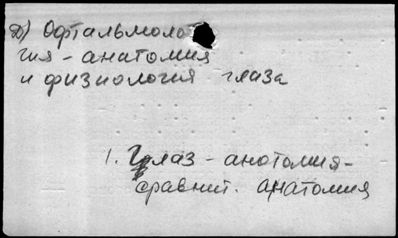 Д) Офтальмоло
гия - анатомия
и физиология глаза
1. Глаз - анотомия -
сравнит. анатомия